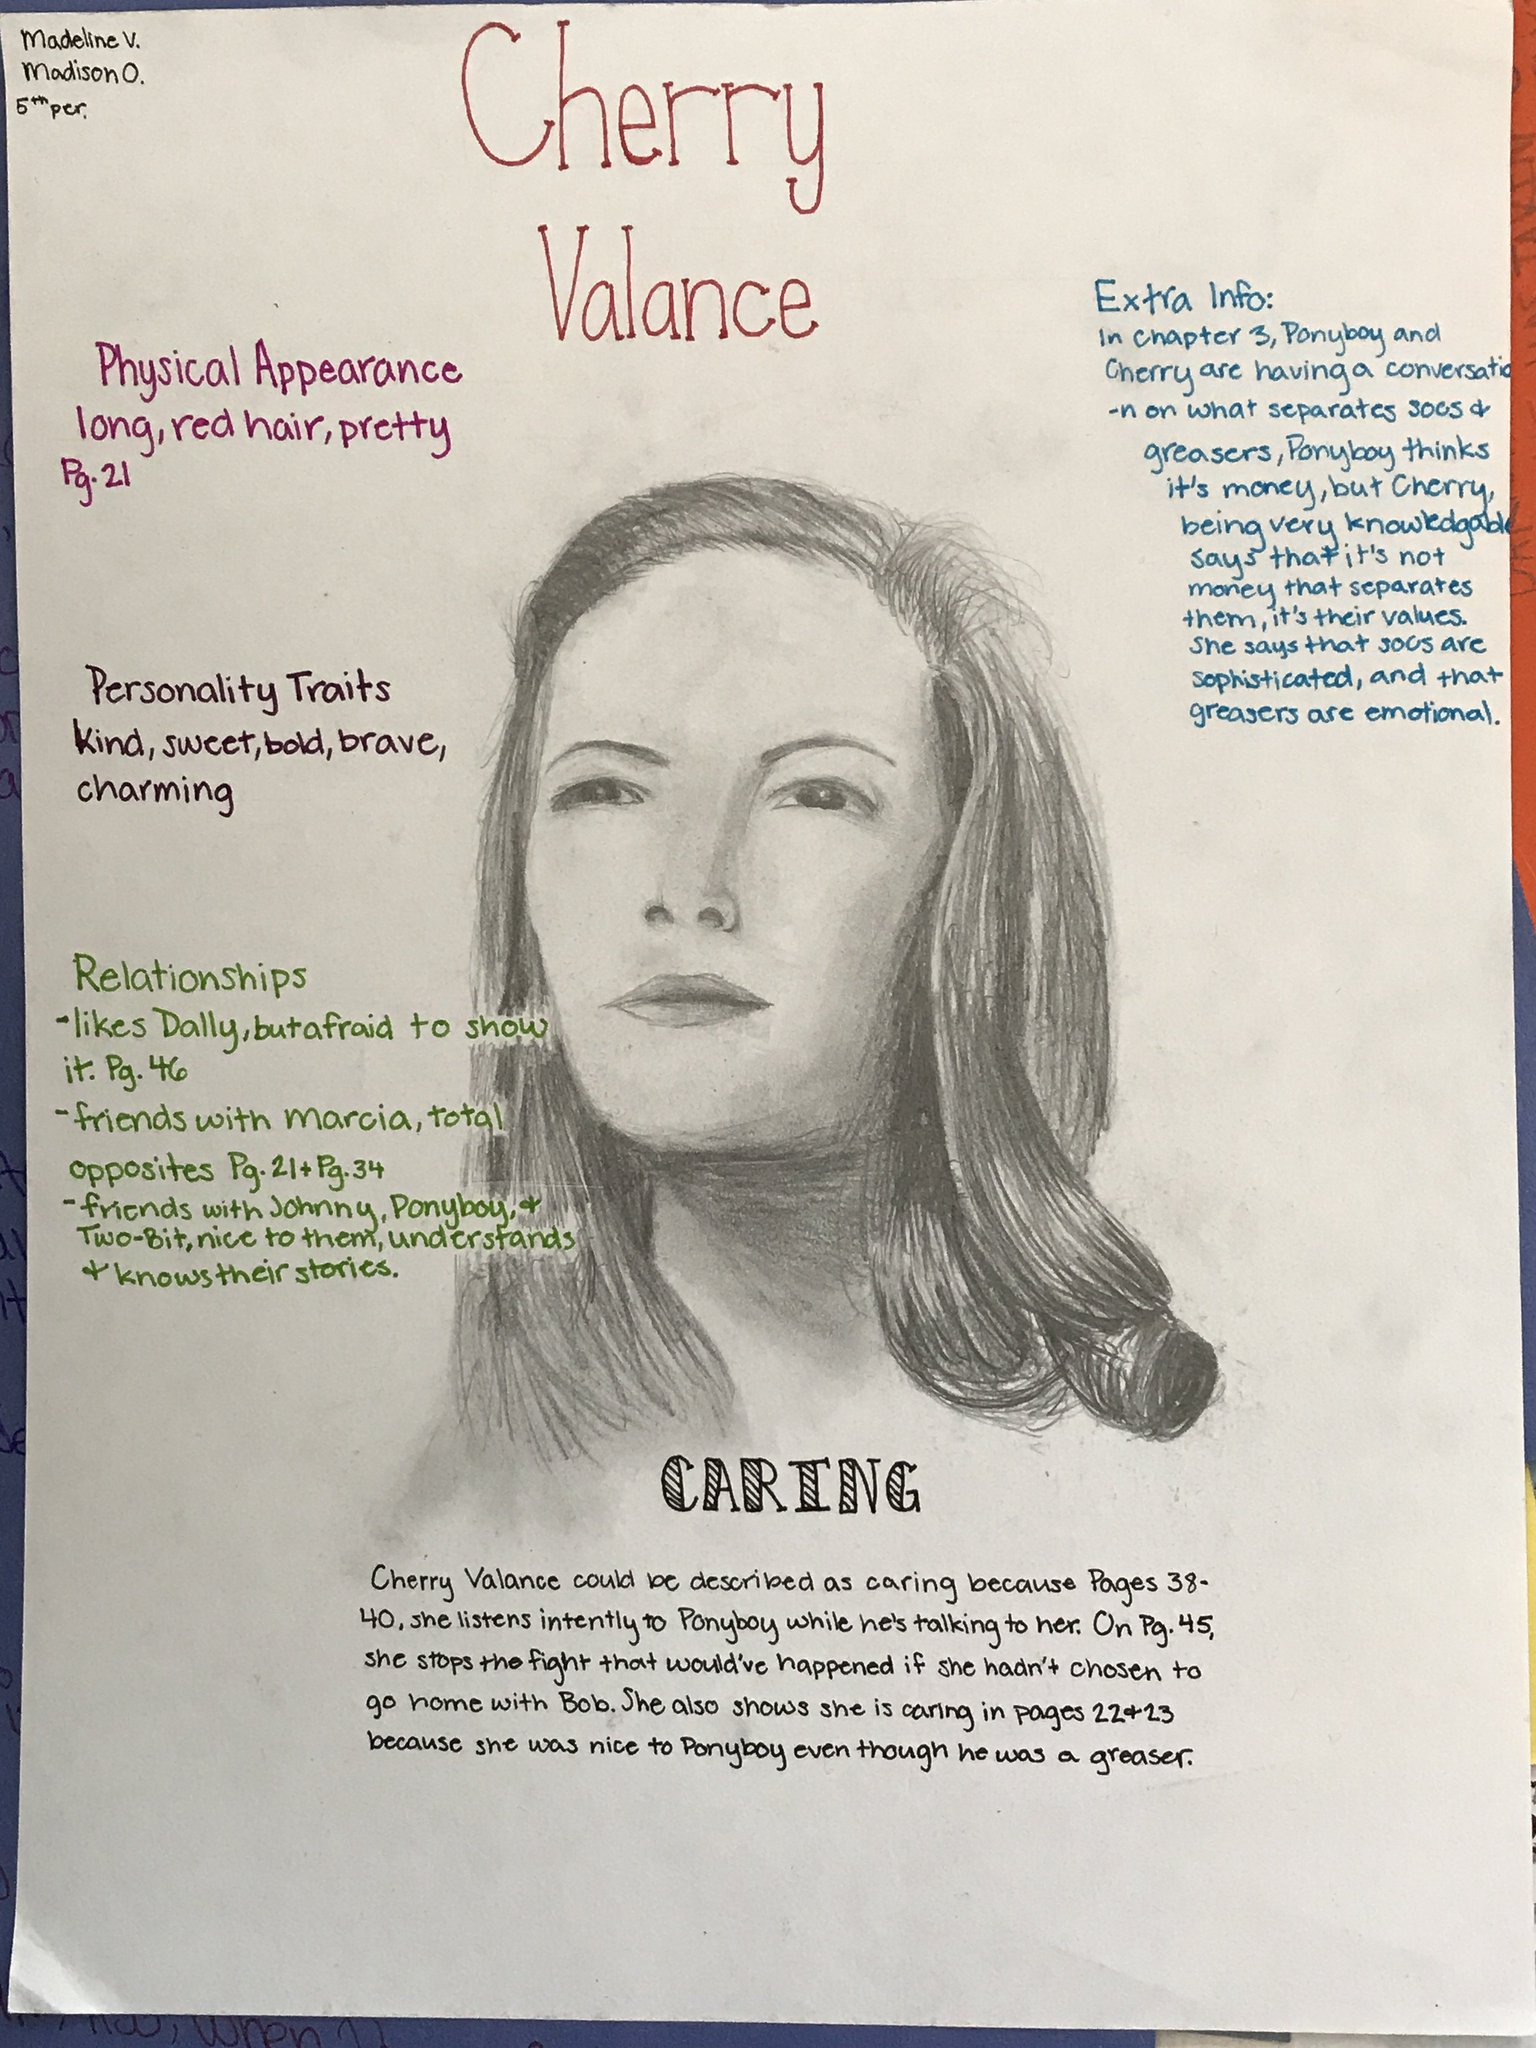 Madeline V.
Madison O.
5th per.
Cherry
Valance
Physical Appearance
long, red hair, pretty
Pg. 21
Personality Traits
kind, sweet, bold, brave,
charming
Relationships
-likes Dally, but afraid to show
it. Pg. 46
-friends with Marcia, total
opposites Pg. 21 + Pg. 34
-friends with Johnny, Ponyboy, +
Two-Bit, nice to them, understands
+ knows their stories.
Extra Info:
In chapter 3, Ponyboy and
Cherry are having a conversatio
-n on what separates socs +
greasers, Ponyboy thinks
it's money, but Cherry,
being very knowledgable
says that it's not
money that separates
them, it's their values.
She says that socs are
sophisticated, and that
greasers are emotional.
CARING
Cherry Valance could be described as caring because Pages 38-
40, she listens intently to Ponyboy while he's talking to her. On Pg. 45,
she stops the fight that would've happened if she hadn't chosen to
go home with Bob. She also shows she is caring in pages 22+23
because she was nice to Ponyboy even though he was a greaser.